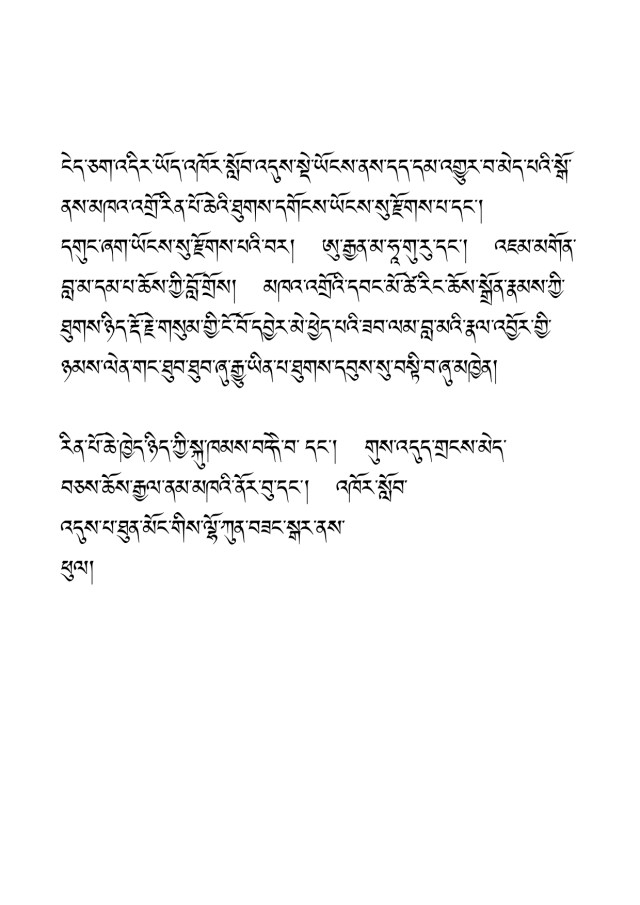 ངེད་ཅག་འདིར་ཡོད་འཁོར་སློབ་འདུས་སྡེ་ཡོངས་ནས་དད་དམ་འགྱུར་བ་མེད་པའི་སྒོ་
ནས་མཁའ་འགྲོ་རིན་པོ་ཆེའི་ཐུགས་དགོངས་ཡོངས་སུ་རྫོགས་པ་དང་།
དགུང་ཞག་ཡོངས་སུ་རྫོགས་པའི་བར། ཨུ་རྒྱན་མ་ཧཱ་གུ་རུ་དང་། འཇམ་མགོན་
བླ་མ་དམ་པ་ཆོས་ཀྱི་བློ་གྲོས། མཁའ་འགྲོའི་དབང་མོ་ཚེ་རིང་ཆོས་སྒྲོན་རྣམས་ཀྱི་
ཐུགས་ཉིད་རྡོ་རྗེ་གསུམ་གྱི་ངོ་བོ་དབྱེར་མེ་ཕྱེད་པའི་ཟབ་ལམ་བླ་མའི་རྣལ་འབྱོར་གྱི་
ཉམས་ལེན་གང་ཐུབ་ཐུབ་ཞུ་རྒྱུ་ཡིན་པ་ཐུགས་དབུས་སུ་བསྟི་བ་ཞུ་མཁྱེན།
རིན་པོ་ཆེ་ཁྱེད་ཉིད་ཀྱི་སྐུ་ཁམས་བརྡེ་བ་ དང་། གུས་འདུད་གྲངས་མེད་
བཅས་ཆོས་རྒྱལ་ནམ་མཁའི་ནོར་བུ་དང་། འཁོར་སློབ་
འདུས་པ་ཐུན་མོང་གིས་ལྷོ་ཀུན་བཟང་སྒར་ནས་
ཕུལ།